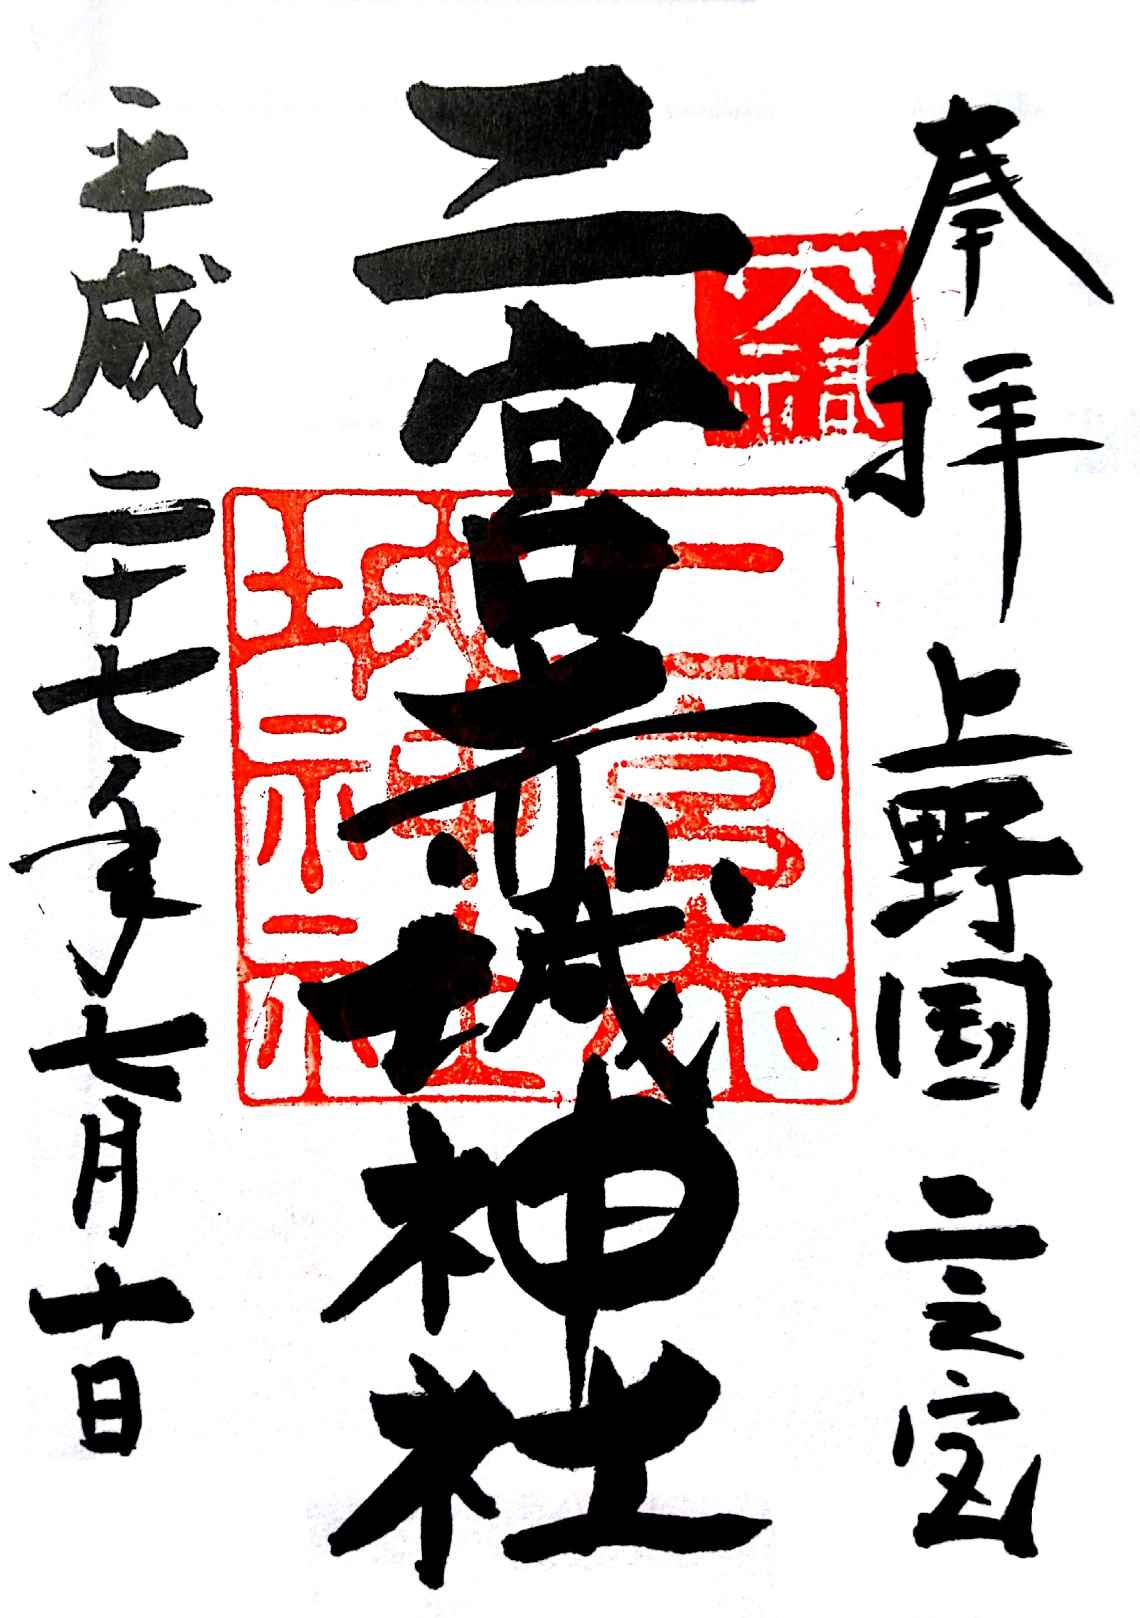 奉拝 上野国 二之宮
大胡
二宮赤城神社
二宮赤城神社
平成二十七年七月十日